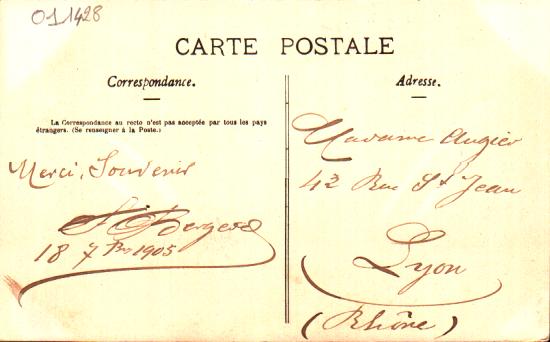 011428
CARTE POSTALE
Correspondance.
La Correspondance au recto n'est pas acceptée par tous les pays
étrangers. (Se renseigner à la Poste.)
Merci, Souvenir
18 7bre 1905
Adresse.
Madame Augier
42 Rue St Jean
Lyon
(Rhône)